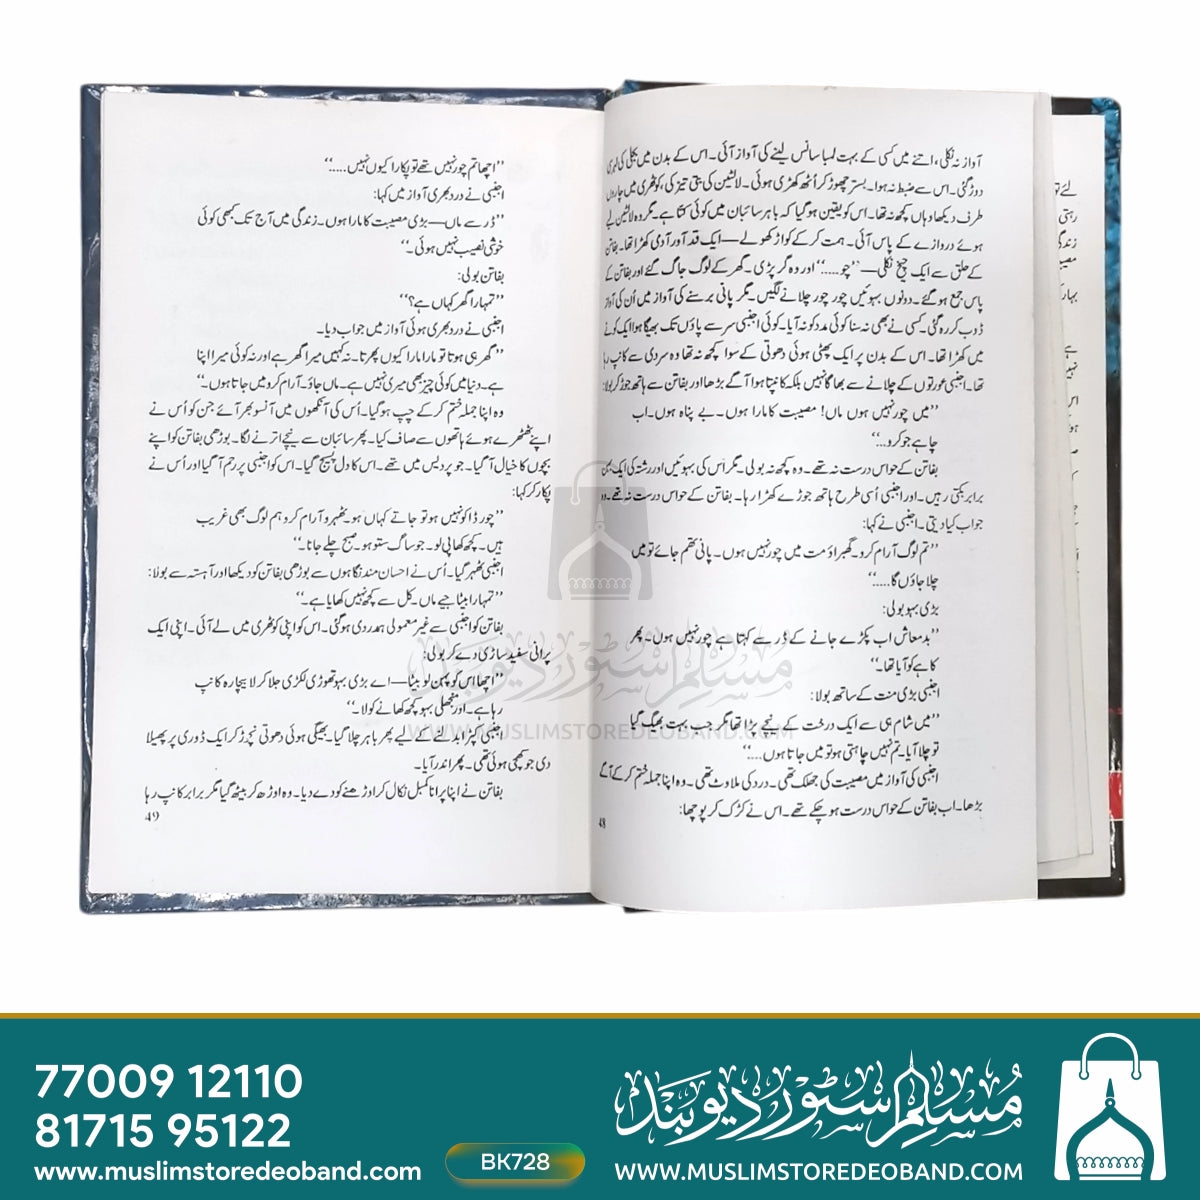 آواز نہ نکلی، اتنے میں کسی کے بہت لمبا سانس لینے کی آواز آئی۔ اس کے بدن میں بجلی کی لہری
دوڑ گئی۔ اس سے ضبط نہ ہوا۔ بستر چھوڑ کر اُٹھ کھڑی ہوئی۔ لالٹین کی بتی تیز کی، کوٹھری میں چاروں
طرف دیکھا وہاں کچھ نہ تھا۔ اس کو یقین ہو گیا کہ باہر سائبان میں کوئی کتا ہے۔ مگر وہ لالٹین لیے
ہوئے دروازے کے پاس آئی۔ ہمت کر کے کواڑ کھولے—ایک قد آور آدمی کھڑا تھا۔ بفاتن
کے حلق سے ایک چیخ نکلی—’’چو.....‘‘ اور وہ گر پڑی۔ گھر کے لوگ جاگ گئے اور بفاتن کے
پاس جمع ہو گئے۔ دونوں بہوئیں چور چور چلانے لگیں۔ مگر پانی برسنے کی آواز میں اُن کی آواز
ڈوب کر رہ گئی۔ کسی نے بھی نہ سنا کوئی مدد کو نہ آیا۔ کوئی اجنبی سر سے پاؤں تک بھیگا ہوا ایک کونے
میں کھڑا تھا۔ اس کے بدن پر ایک پھٹی ہوئی دھوتی کے سوا کچھ نہ تھا وہ سردی سے کانپ رہا
تھا۔ اجنبی عورتوں کے چلانے سے بھاگا نہیں بلکہ کانپتا ہوا آگے بڑھا اور بفاتن سے ہاتھ جوڑ کر بولا:
’’میں چور نہیں ہوں ماں! مصیبت کا مارا ہوں۔ بے پناہ ہوں۔ اب
چاہے جو کرو...‘‘
بفاتن کے حواس درست نہ تھے۔ وہ کچھ نہ بولی۔ مگر اس کی بہوئیں اور رشتہ کی ایک بہن
برابر بکتی رہیں۔ اور اجنبی اُسی طرح ہاتھ جوڑے کھڑا رہا۔ بفاتن کے حواس درست نہ تھے۔ وہ
جواب کیا دیتی۔ اجنبی نے کہا:
’’تم لوگ آرام کرو۔ گھبراؤ مت میں چور نہیں ہوں۔ پانی تھم جائے تو میں
چلا جاؤں گا.....‘‘
بڑی بہو بولی:
’’بدمعاش اب پکڑے جانے کے ڈر سے کہتا ہے چور نہیں ہوں۔ پھر
کاہے کو آیا تھا۔‘‘
اجنبی بڑی منت کے ساتھ بولا:
’’میں شام ہی سے ایک درخت کے نیچے پڑا تھا مگر جب بہت بھیگ گیا
تو چلا آیا۔ تم نہیں چاہتی ہو تو میں جاتا ہوں....‘‘
اجنبی کی آواز میں مصیبت کی جھلک تھی۔ درد کی ملاوٹ تھی۔ وہ اپنا جملہ ختم کر کے آگے
بڑھا۔ اب بفاتن کے حواس درست ہو چکے تھے۔ اس نے کڑک کر پوچھا:
48
’’اچھا تم چور نہیں تھے تو پکارا کیوں نہیں.....‘‘
اجنبی نے درد بھری آواز میں کہا:
’’ڈر سے ماں—بڑی مصیبت کا مارا ہوں۔ زندگی میں آج تک کبھی کوئی
خوشی نصیب نہیں ہوئی۔‘‘
بفاتن بولی:
’’تمہارا گھر کہاں ہے؟‘‘
اجنبی نے درد بھری ہوئی آواز میں جواب دیا۔
’’گھر ہی ہوتا تو مارا مارا کیوں پھرتا۔ نہ کہیں میرا گھر ہے اور نہ کوئی میرا اپنا
ہے۔ دنیا میں کوئی چیز بھی میری نہیں ہے۔ ماں جاؤ۔ آرام کرو میں جاتا ہوں۔‘‘
وہ اپنا جملہ ختم کر کے چپ ہو گیا۔ اُس کی آنکھوں میں آنسو بھر آئے جن کو اُس نے
اپنے ٹھٹھرے ہوئے ہاتھوں سے صاف کیا۔ پھر سائبان سے نیچے اترنے لگا۔ بوڑھی بفاتن کو اپنے
بچوں کا خیال آ گیا۔ جو پردیس میں تھے۔ اس کا دل پسیج گیا۔ اس کو اجنبی پر رحم آ گیا اور اُس نے
پکار کر کہا:
’’چور ڈاکو نہیں ہو تو جاتے کہاں ہو۔ ٹھہرو آرام کرو ہم لوگ بھی غریب
ہیں۔ کچھ کھا پی لو۔ جو ساگ ستو ہو۔ صبح چلے جانا۔‘‘
اجنبی ٹھہر گیا۔ اُس نے احسان مند نگاہوں سے بوڑھی بفاتن کو دیکھا اور آہستہ سے بولا:
’’تمہارا بیٹا جیے ماں۔ کل سے کچھ نہیں کھایا ہے۔‘‘
بفاتن کو اجنبی سے غیر معمولی ہمدردی ہو گئی۔ اس کو اپنی کوٹھری میں لے آئی۔ اپنی ایک
پرانی سفید ساڑی دے کر بولی:
’’اچھا اس کو پہن لو بیٹا—اے بڑی بہو تھوڑی لکڑی جلا کر لا بیچارہ کانپ
رہا ہے۔ اور منجھلی بہو کچھ کھانے کو لا۔‘‘
اجنبی کپڑا بدلنے کے لیے پھر باہر چلا گیا۔ بھیگی ہوئی دھوتی نچوڑ کر ایک ڈوری پر پھیلا
دی جو کھنچی ہوئی تھی۔ پھر اندر آیا۔
بفاتن نے اپنا پرانا کمبل نکال کر اوڑھنے کو دے دیا۔ وہ اوڑھ کر بیٹھ گیا مگر برابر کانپ رہا
49
لئے تو
رہتی
زندگی
مصیب
بہار ک
نہیں
اس
مسلم سٹور دیوبند
WWW.MUSLIMSTOREDEOBAND.COM
77009 12110
81715 95122
www.muslimstoredeoband.com
BK728
مسلم سٹور دیوبند
WWW.MUSLIMSTOREDEOBAND.COM